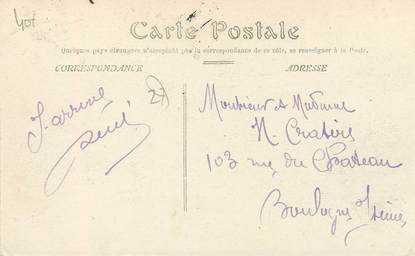 40f
Carte Postale
Quelques pays étrangers n'acceptent pas la correspondance de ce côté, se renseigner à la Poste.
CORRESPONDANCE
ADRESSE
J'arrive
René
27
Monsieur & Madame
N.
103 rue du Chateau
Boulogne s/ Seine